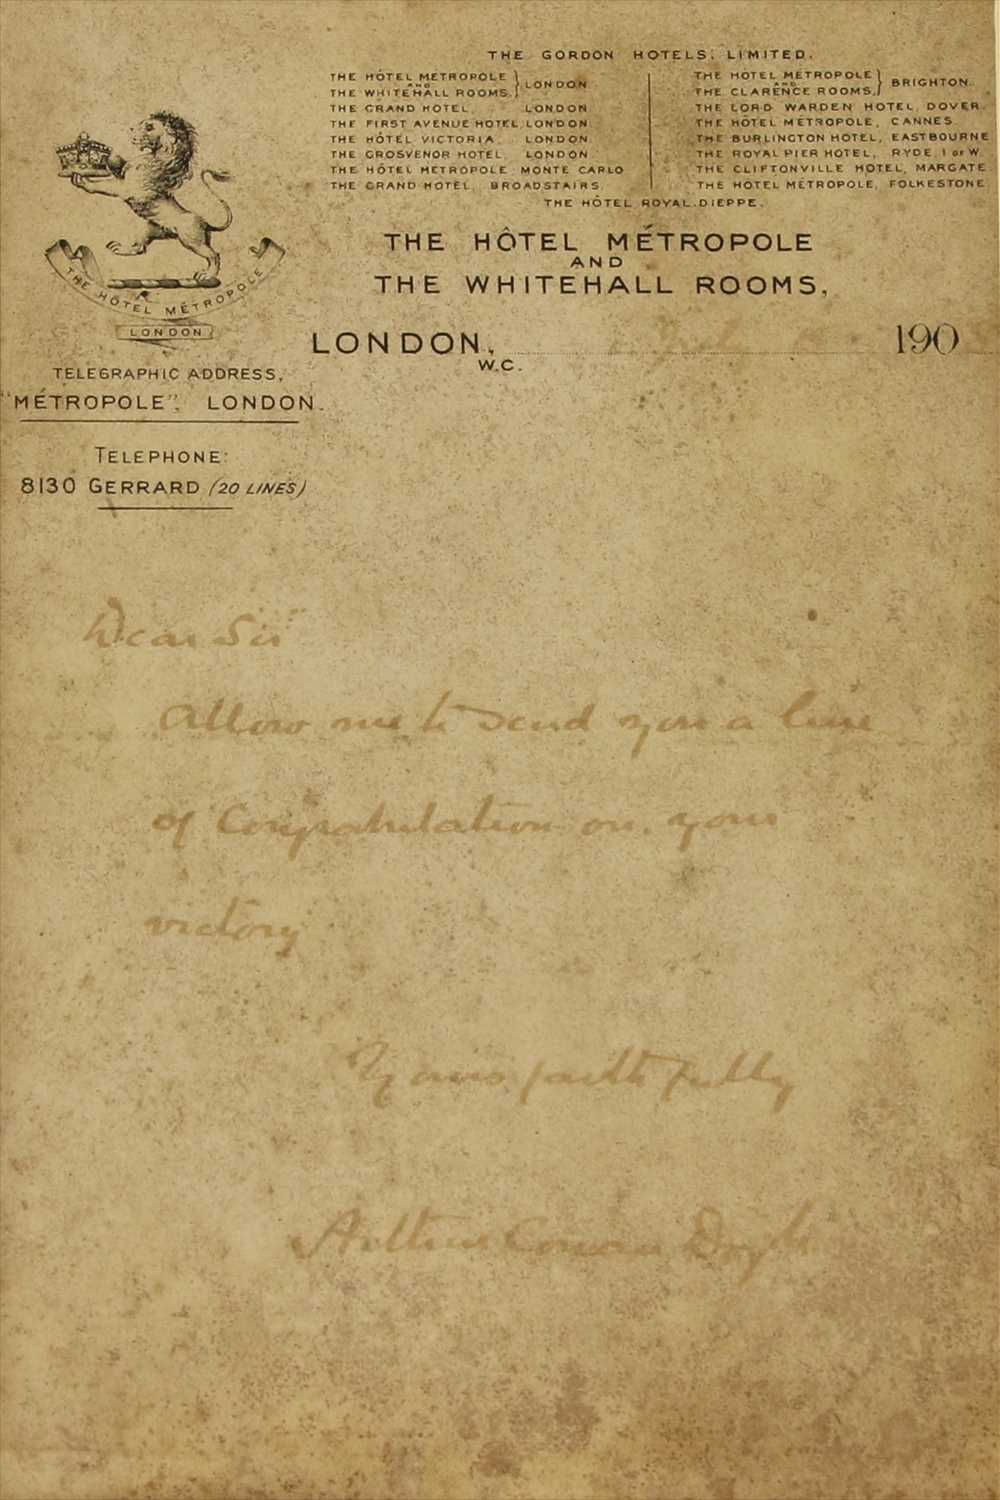 THE GORDON HOTELS, LIMITED.
THE HÔTEL MÉTROPOLE
AND
THE WHITEHALL ROOMS,
LONDON
THE GRAND HOTEL, LONDON
THE FIRST AVENUE HOTEL, LONDON
THE HÔTEL VICTORIA, LONDON
THE GROSVENOR HOTEL LONDON
THE HÔTEL MÉTROPOLE MONTE CARLO
THE GRAND HOTEL, BROADSTAIRS
THE HOTEL MÉTROPOLE
AND
THE CLARENCE ROOMS,
BRIGHTON.
THE LORD WARDEN HOTEL, DOVER.
THE HÔTEL MÉTROPOLE, CANNES
THE BURLINGTON HOTEL, EASTBOURNE
THE ROYAL PIER HOTEL, RYDE, I OF W.
THE CLIFTONVILLE HOTEL, MARGATE
THE HÔTEL MÉTROPOLE, FOLKESTONE
THE HÔTEL ROYAL, DIEPPE.
THE HÔTEL MÉTROPOLE
AND
THE WHITEHALL ROOMS,
LONDON, 190
W.C.
THE HÔTEL MÉTROPOLE
LONDON
TELEGRAPHIC ADDRESS,
"MÉTROPOLE", LONDON.
TELEPHONE:
8130 GERRARD (20 LINES)
Dear Sir
Allow me to send you a line
of Congratulation on your
victory
Yours faithfully
Arthur Conan Doyle